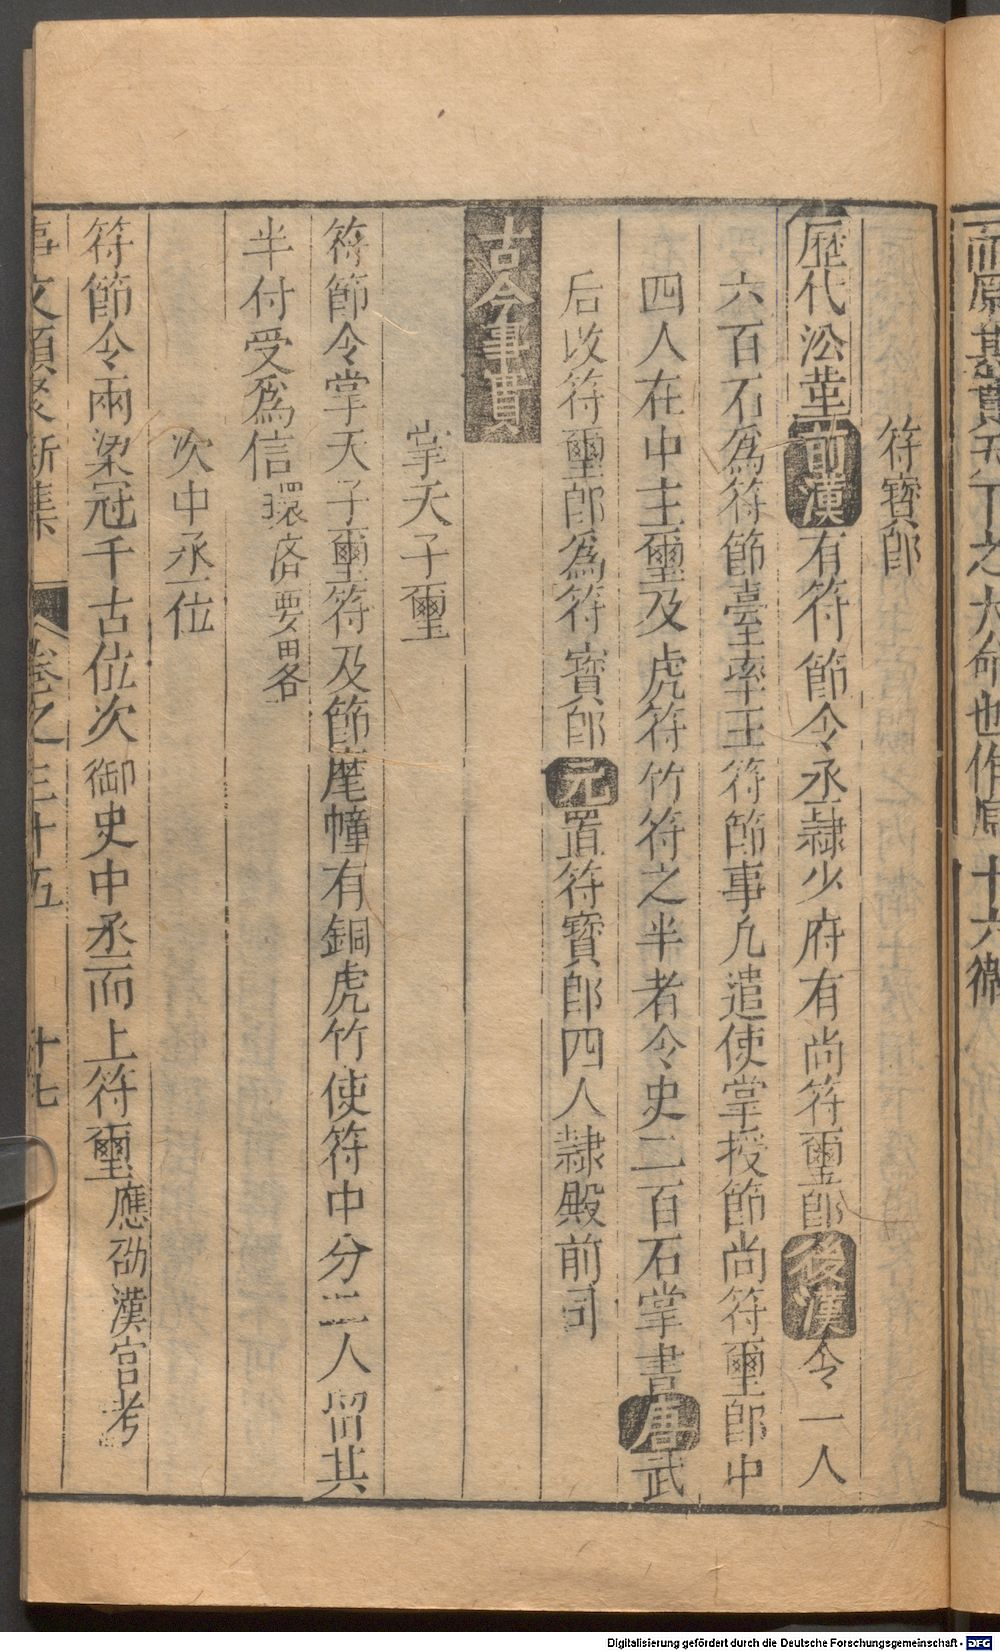 符寶郎
歷代沿革前漢有符節令丞隷少府有尚符璽郎後漢令一人
六百石爲符節臺率主符節事凡遣使掌授節尚符璽郎中
四人在中主璽及虎符竹符之半者令史二百石掌書唐武
后改符璽郎爲符寶郎元置符寶郎四人隷殿前司
古今事實
掌天子璽
符節令掌天子璽符及節麾幢有銅虎竹使符中分二人留其
半付受爲信環濟要畧
次中丞位
符節令兩梁冠千古位次御史中丞而上符璽應劭漢官考
事文類聚新集 卷之三十五 十七
十六衛
Digitalisierung gefördert durch die Deutsche Forschungsgemeinschaft - DFG